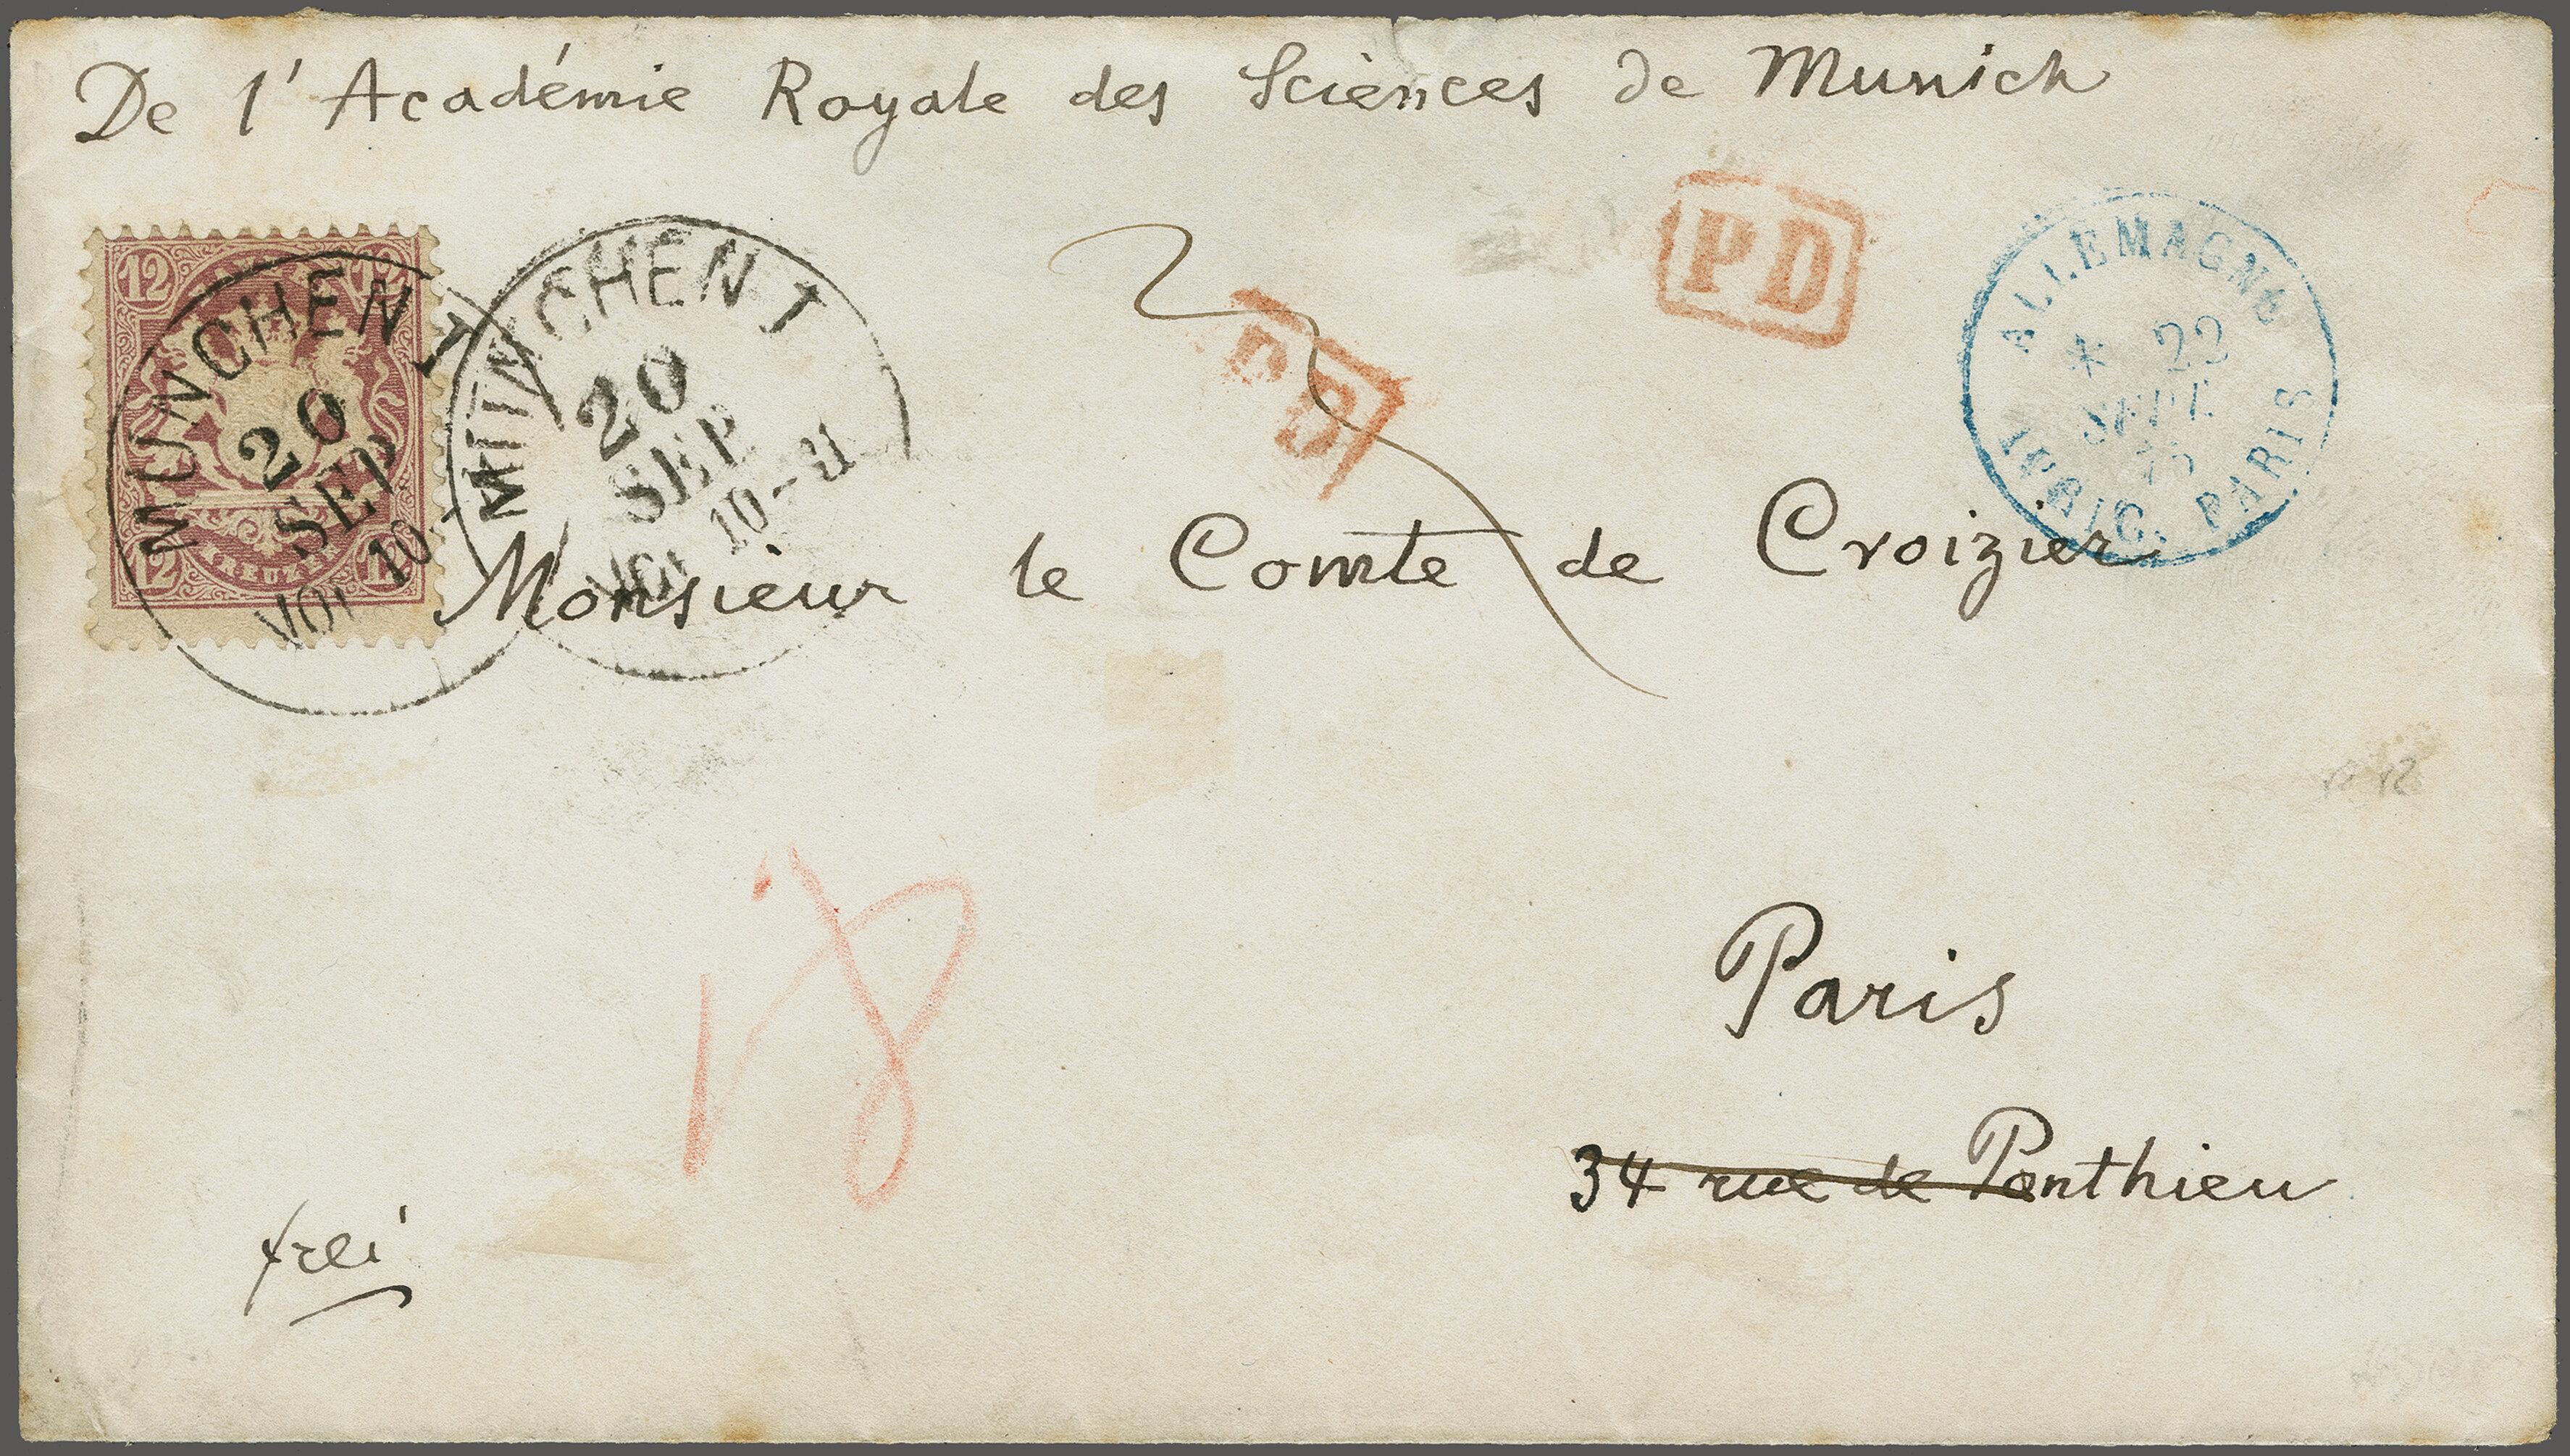 De l'Académie Royale des Sciences de Munich
12 12
KREUZER
12 12
MÜNCHEN I
20
SEP
10-
VOR
MÜNCHEN I
20
SEP
10-11
VOR
PD
PD
ALLEMAGNE
* 22
SEPT.
PARIS
Monsieur le Comte de Croizier
18
Paris
34 rue de Ponthieu
frei